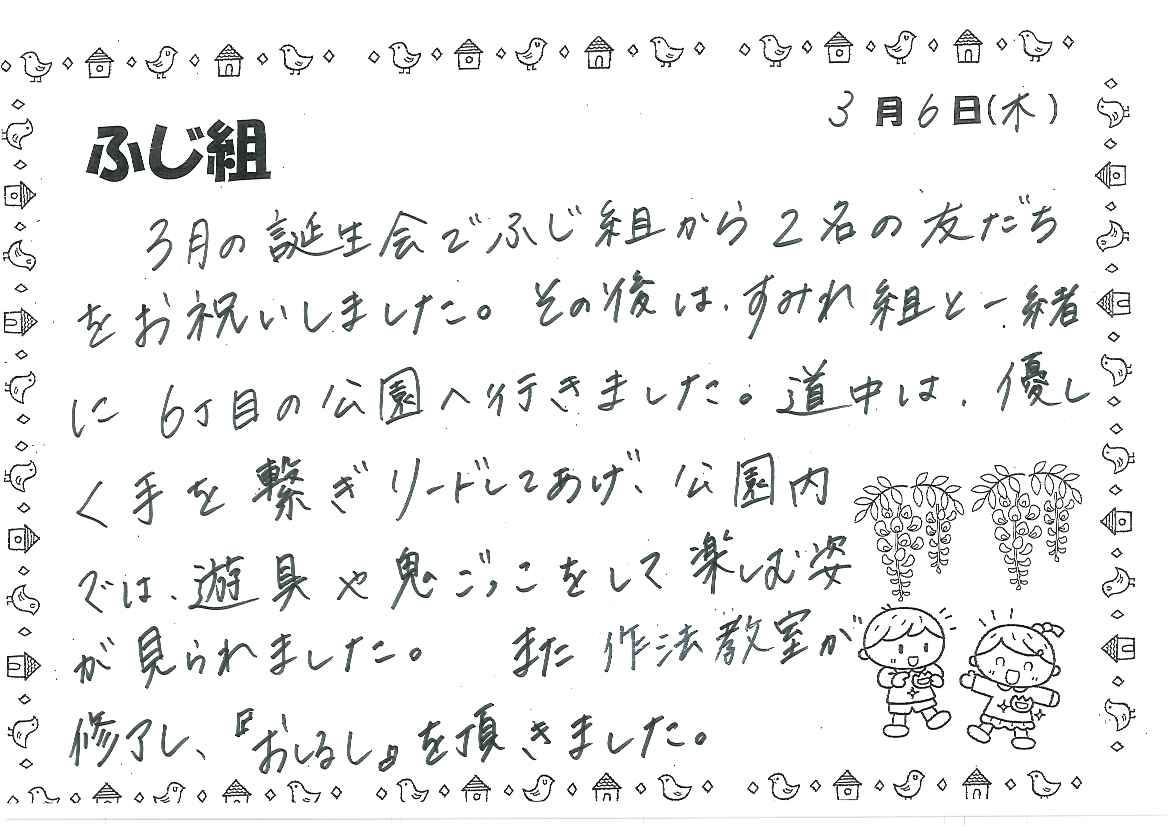 3月6日(木)
ふじ組
3月の誕生会でふじ組から2名の友だち
をお祝いしました。その後は、すみれ組と一緒
に6丁目の公園へ行きました。道中は、優し
く手を繋ぎリードしてあげ、公園内
では、遊具や鬼ごっこをして楽しむ姿
が見られました。 また作法教室が
修了し、『おしるし』を頂きました。